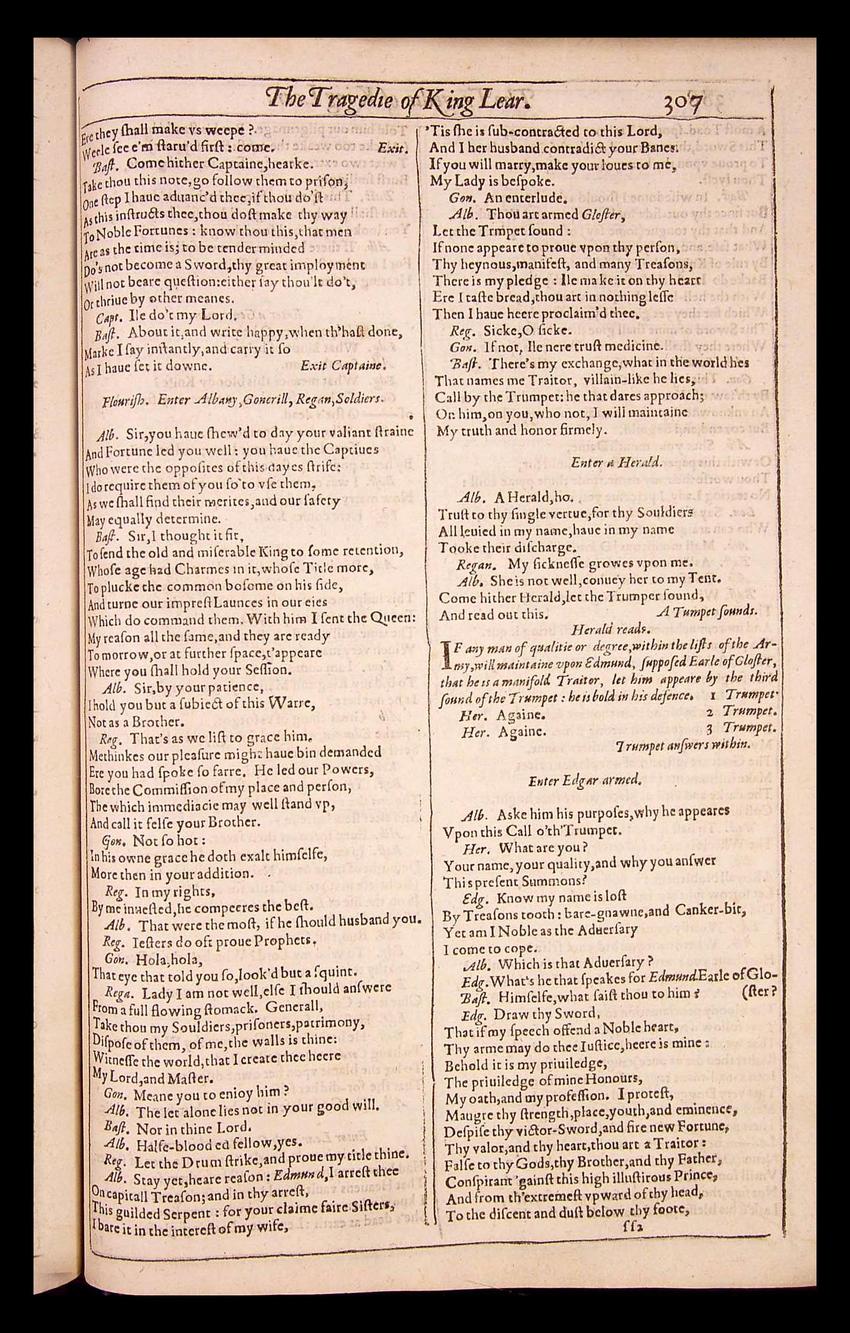 The Tragedie of King Lear. 307
Ere they ſhall make vs weepe?
Weele ſee e'm ſtaru'd firſt: come. Exit.
Baſt. Come hither Captaine, hearke.
Take thou this note, go follow them to priſon,
One ſtep I haue aduanc'd thee, if thou do'ſt
As this inſtructs thee, thou doſt make thy way
To Noble Fortunes: know thou this, that men
Are as the time is; to be tender minded
Do's not become a Sword, thy great imployment
Will not beare queſtion: either ſay thou'lt do't,
Or thriue by other meanes.
Capt. Ile do't my Lord.
Baſt. About it, and write happy, when th'haſt done,
Marke I ſay inſtantly, and carry it ſo
As I haue ſet it downe. Exit Captaine.
Flouriſh. Enter Albany, Gonerill, Regan, Soldiers.
Alb. Sir, you haue ſhew'd to day your valiant ſtraine
And Fortune led you well: you haue the Captiues
Who were the oppoſites of this dayes ſtrife:
I do require them of you ſo to vſe them,
As we ſhall find their merites, and our ſafety
May equally determine.
Baſt. Sir, I thought it fit,
To ſend the old and miſerable King to ſome retention,
Whoſe age had Charmes in it, whoſe Title more,
To plucke the common boſome on his ſide,
And turne our impreſt Launces in our eies
Which do command them. With him I ſent the Queen:
My reaſon all the ſame, and they are ready
To morrow, or at further ſpace, t'appeare
Where you ſhall hold your Seſſion.
Alb. Sir, by your patience,
I hold you but a ſubiect of this Warre,
Not as a Brother.
Reg. That's as we liſt to grace him.
Methinkes our pleaſure might haue bin demanded
Ere you had ſpoke ſo farre. He led our Powers,
Bore the Commiſſion of my place and perſon,
The which immediacie may well ſtand vp,
And call it ſelfe your Brother.
Gon. Not ſo hot:
In his owne grace he doth exalt himſelfe,
More then in your addition.
Reg. In my rights,
By me inueſted, he compeeres the beſt.
Alb. That were the moſt, if he ſhould husband you.
Reg. Ieſters do oft proue Prophets.
Gon. Hola, hola,
That eye that told you ſo, look'd but a ſquint.
Rega. Lady I am not well, elſe I ſhould anſwere
From a full flowing ſtomack. Generall,
Take thou my Souldiers, priſoners, patrimony,
Diſpoſe of them, of me, the walls is thine:
Witneſſe the world, that I create thee heere
My Lord, and Maſter.
Gon. Meane you to enioy him?
Alb. The let alone lies not in your good will.
Baſt. Nor in thine Lord.
Alb. Halfe-blooded fellow, yes.
Reg. Let the Drum ſtrike, and proue my title thine.
Alb. Stay yet, heare reaſon: Edmund, I arreſt thee
On capitall Treaſon; and in thy arreſt,
This guilded Serpent: for your claime faire Siſters,
I bare it in the intereſt of my wife,
'Tis ſhe is ſub-contracted to this Lord,
And I her husband contradict your Banes.
If you will marry, make your loues to me,
My Lady is beſpoke.
Gon. An enterlude.
Alb. Thou art armed Gloſter,
Let the Trmpet ſound:
If none appeare to proue vpon thy perſon,
Thy heynous, manifeſt, and many Treaſons,
There is my pledge: Ile make it on thy heart
Ere I taſte bread, thou art in nothing leſſe
Then I haue heere proclaim'd thee.
Reg. Sicke, O ſicke.
Gon. If not, Ile nere truſt medicine.
Baſt. There's my exchange, what in the world hes
That names me Traitor, villain-like he lies,
Call by the Trumpet: he that dares approach;
On him, on you, who not, I will maintaine
My truth and honor firmely.
Enter a Herald.
Alb. A Herald, ho.
Truſt to thy ſingle vertue, for thy Souldiers
All leuied in my name, haue in my name
Tooke their diſcharge.
Regan. My ſickneſſe growes vpon me.
Alb. She is not well, conuey her to my Tent.
Come hither Herald, let the Trumper ſound,
And read out this. A Tumpet ſounds.
Herald reads.
IF any man of qualitie or degree, within the liſts of the Ar-
my, will maintaine vpon Edmund, ſuppoſed Earle of Gloſter,
that he is a manifold Traitor, let him appeare by the third
ſound of the Trumpet: he is bold in his defence. 1 Trumpet.
Her. Againe. 2 Trumpet.
Her. Againe. 3 Trumpet.
Trumpet anſwers within.
Enter Edgar armed.
Alb. Aske him his purpoſes, why he appeares
Vpon this Call o'th'Trumpet.
Her. What are you?
Your name, your quality, and why you anſwer
This preſent Summons?
Edg. Know my name is loſt
By Treaſons tooth: bare-gnawne, and Canker-bit,
Yet am I Noble as the Aduerſary
I come to cope.
Alb. Which is that Aduerſary?
Edg. What's he that ſpeakes for Edmund Earle of Glo-
Baſt. Himſelfe, what ſaiſt thou to him? (ſter?
Edg. Draw thy Sword,
That if my ſpeech offend a Noble heart,
Thy arme may do thee Iuſtice, heere is mine:
Behold it is my priuiledge,
The priuiledge of mine Honours,
My oath, and my profeſſion. I proteſt,
Maugre thy ſtrength, place, youth, and eminence,
Deſpiſe thy victor-Sword, and fire new Fortune,
Thy valor, and thy heart, thou art a Traitor:
Falſe to thy Gods, thy Brother, and thy Father,
Conſpirant 'gainſt this high illuſtirous Prince,
And from th'extremeſt vpward of thy head,
To the diſcent and duſt below thy foote,
ſſ2